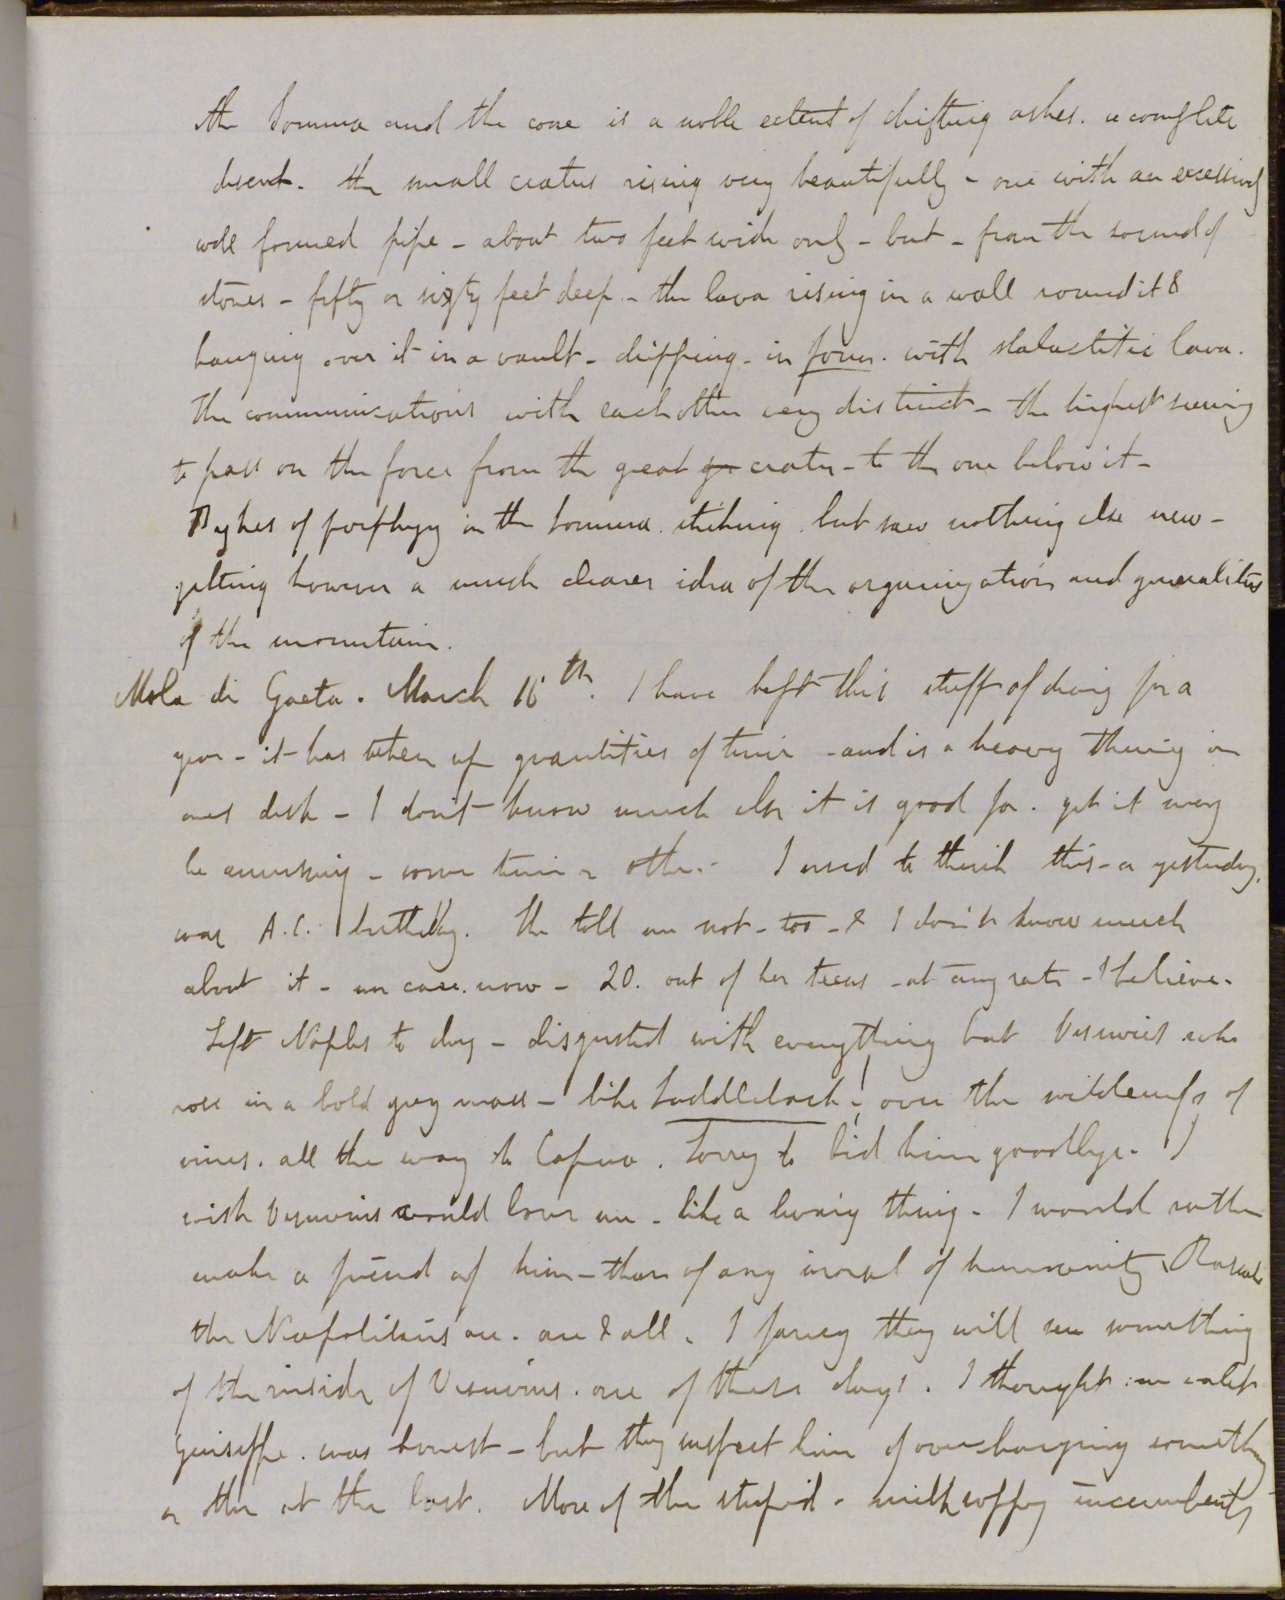 the Somma and the cone is a noble extent of drifting ashes. a complete
desert. the small craters rising very beautifully - one with an excessively
well formed pipe - about two feet wide only - but - from the sound of
stones - fifty or sixty feet deep - the lava rising in a wall round it &
hanging over it in a vault - dripping - in form. with stalactitic lava.
The communications with each other very distinct - the highest seeming
to pass on the force from the great crater - to the one below it -
Dykes of porphyry in the Somma. striking. but saw nothing else new -
getting however a much clearer idea of the organization and generalities
of the mountain.
Mola di Gaeta. March 16th. I have kept this stuff of diary for a
year - it has taken up quantities of time - and is a heavy thing in
ones desk - I don't know much else it is good for. yet it may
be amusing - some time or other - I used to think this - or yesterday,
was A.C. birthday. She told me not - too - & I don't know much
about it - nor care. now - 20. out of her teens - at any rate - I believe.
Left Naples to day - disgusted with everything but Vesuvius who
rose in a bold grey mass - like Saddleback! over the wilderness of
vines. all the way to Capua. Sorry to bid him goodbye. I
wish Vesuvius could love me - like a living thing - I would rather
make a friend of him - than of any morsel of humanity. Rascals
the Neapolitans are. one & all. I fancy they will see something
of the inside of Vesuvius. one of these days. I thought our valet
Guiseppe. was honest - but they suspect him of overcharging something
or other at the last. More of the stupid - milksoppy incumbents